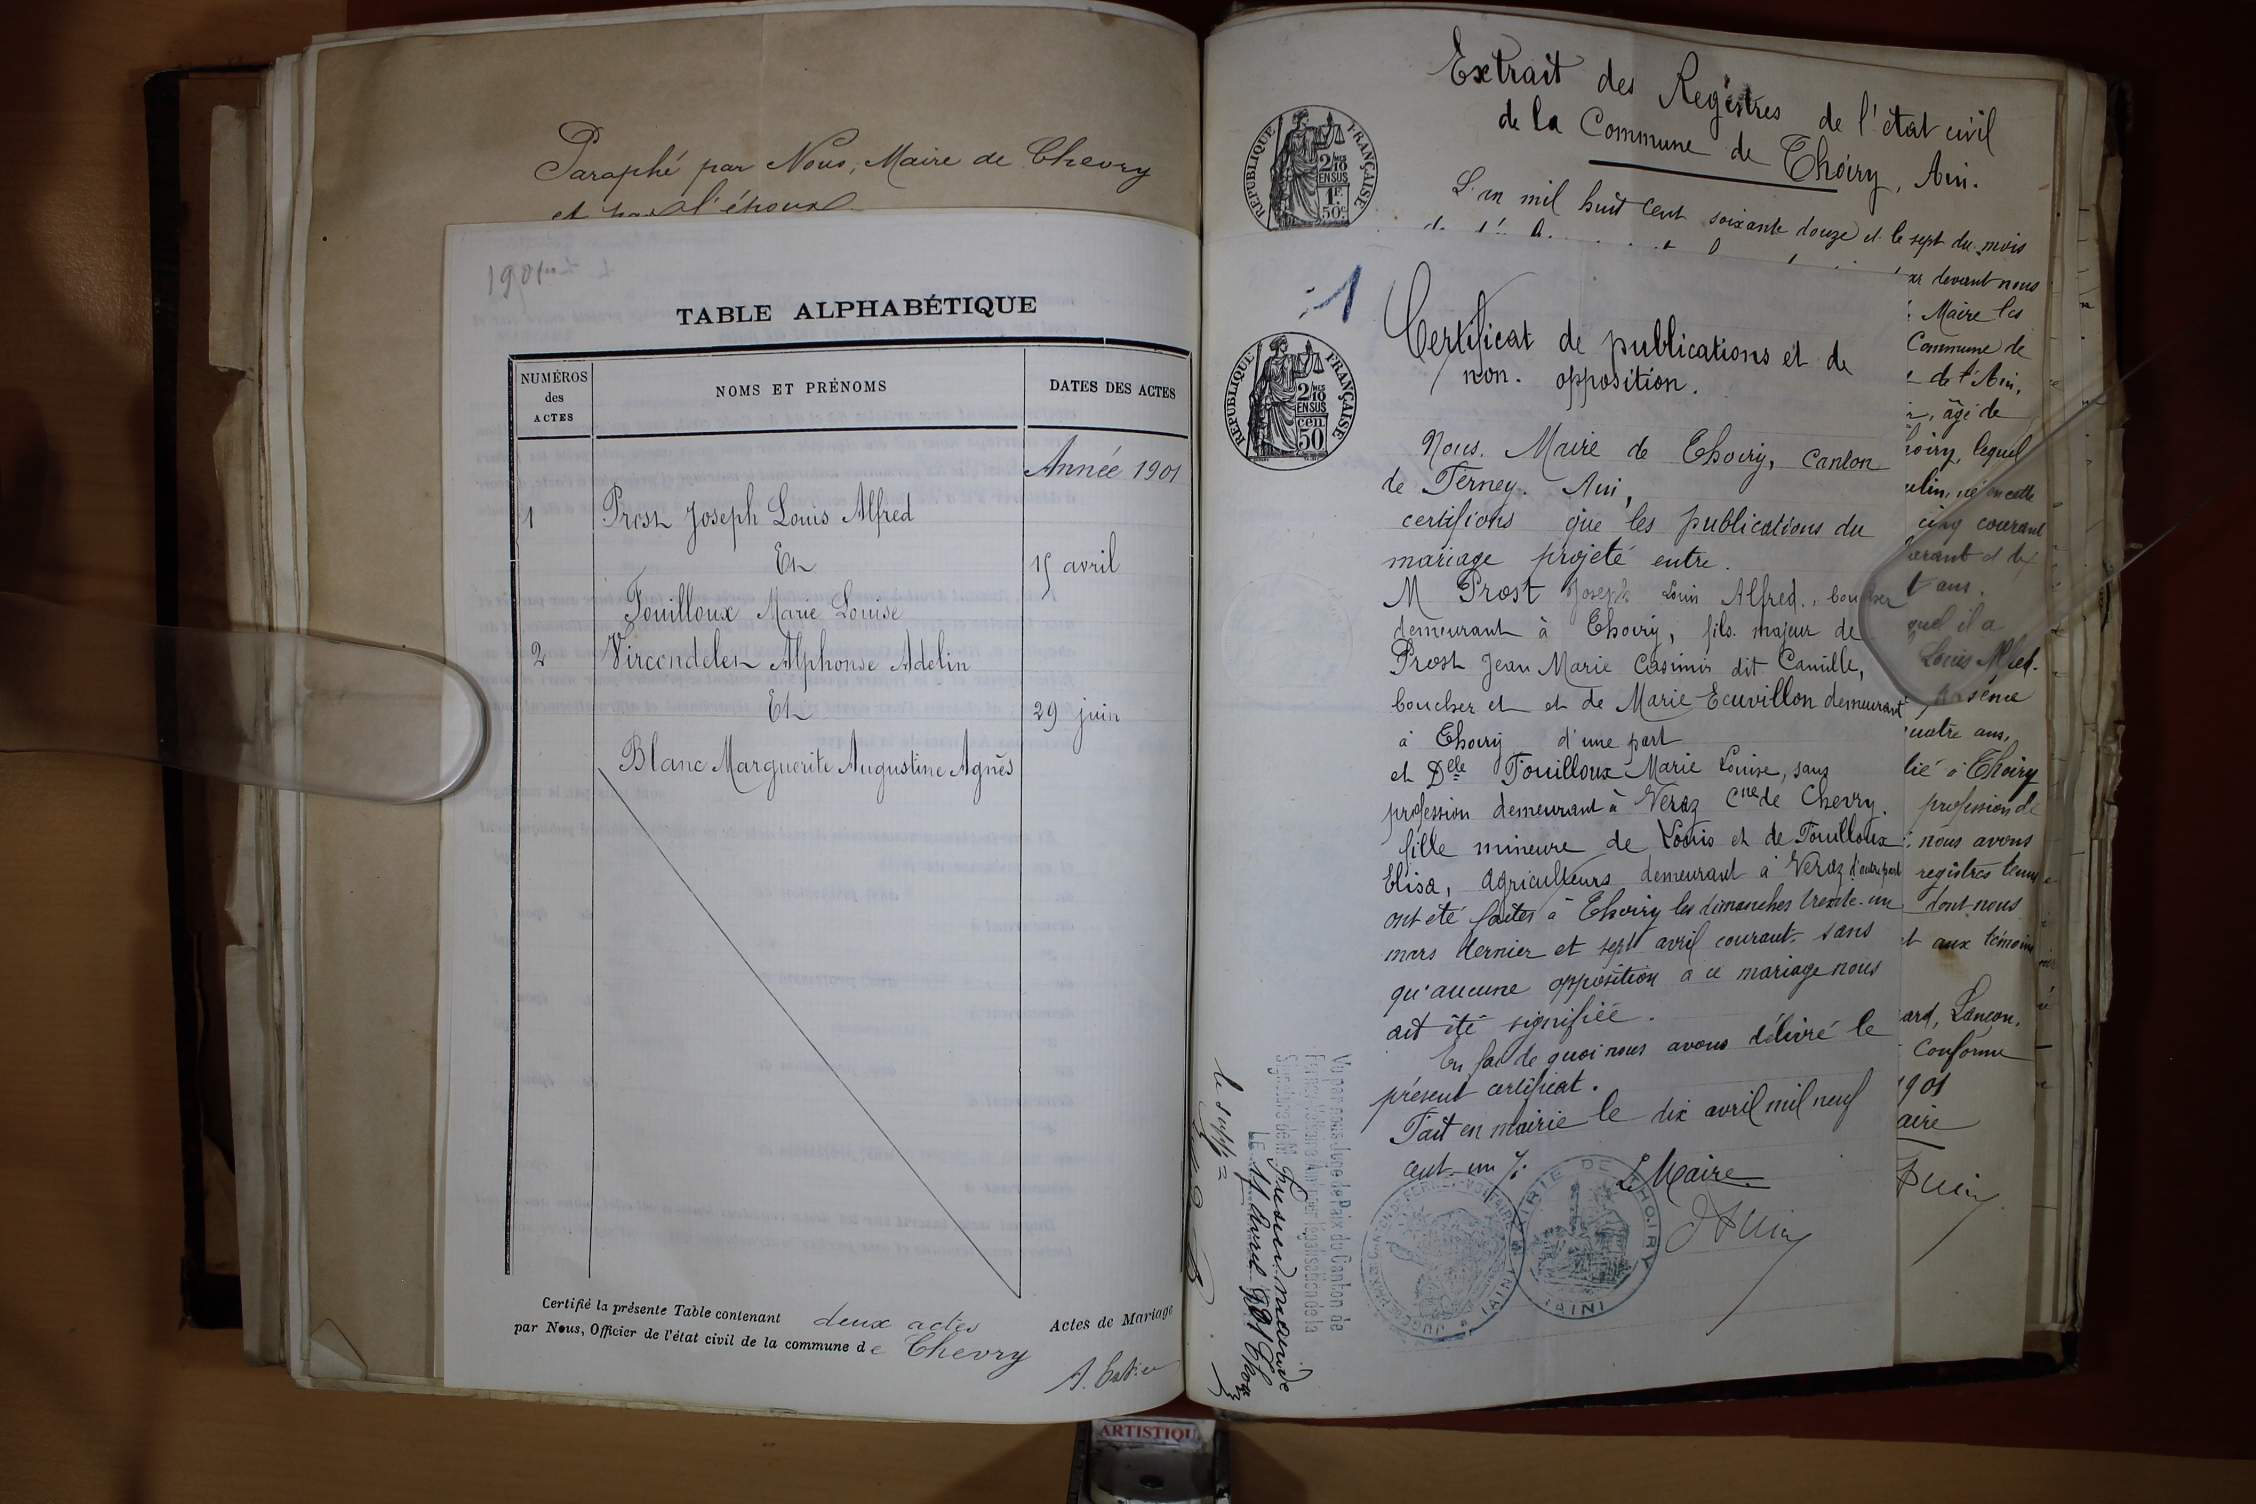 Paraphé par Nous, Maire de Chevry
et par l'époux
1901
TABLE ALPHABÉTIQUE
NUMÉROS
des
ACTES
NOMS ET PRÉNOMS
DATES DES ACTES
Année 1901
1
Prost Joseph Louis Alfred
Et
15 avril
Fouilloux Marie Louise
2
Vircondelet Alphonse Adelin
Et
29 juin
Blanc Marguerite Augustine Agnès
Certifié la présente Table contenant deux actes Actes de Mariage
par Nous, Officier de l'état civil de la commune de Chevry
Extrait des Registres de l'état civil
de la Commune de Thoiry, Ain.
RÉPUBLIQUE FRANÇAISE
2/10
EN SUS
1F.
50c
L'an mil huit cent soixante douze et le sept du mois
1
RÉPUBLIQUE FRANÇAISE
2/10
EN SUS
cen
50
Certificat de publications et de
non. opposition.
Nous. Maire de Thoiry, canton
de Ferney. Ain,
certifions que les publications du
mariage projeté entre.
M Prost Joseph Louis Alfred, boucher
demeurant à Thoiry, fils majeur de
Prost Jean Marie Casimir dit Camille,
boucher et et de Marie Ecuvillon demeurant
à Thoiry d'une part
et Delle Fouilloux Marie Louise, sans
profession demeurant à Veraz Cne de Chevry.
fille mineure de Louis et de Fouilloux
Elisa, agriculteurs demeurant à Veraz d'autre part
ont été faites à Thoiry les dimanches trente-un
mars dernier et sept avril courant. sans
qu'aucune opposition à ce mariage nous
ait été signifiée.
En foi de quoi nous avons délivré le
présent certificat.
Fait en mairie le dix avril mil neuf
cent-un
Le Maire
MAIRIE DE THOIRY
(AIN)
Vu par nous Juge de Paix du Canton de
Ferney-Voltaire (Ain) en légalisation de la
Signature de M.
LE 11 Avril 1901
le supp
devant nous
Maire les
Commune de
de l'Ain,
âgé de
lequel
cinq courant
ans.
quel il a
Louis Alfred.
ans,
à Thoiry
profession de
nous avons
registres tenus
dont nous
aux témoins
Lançon.
Conforme
1901